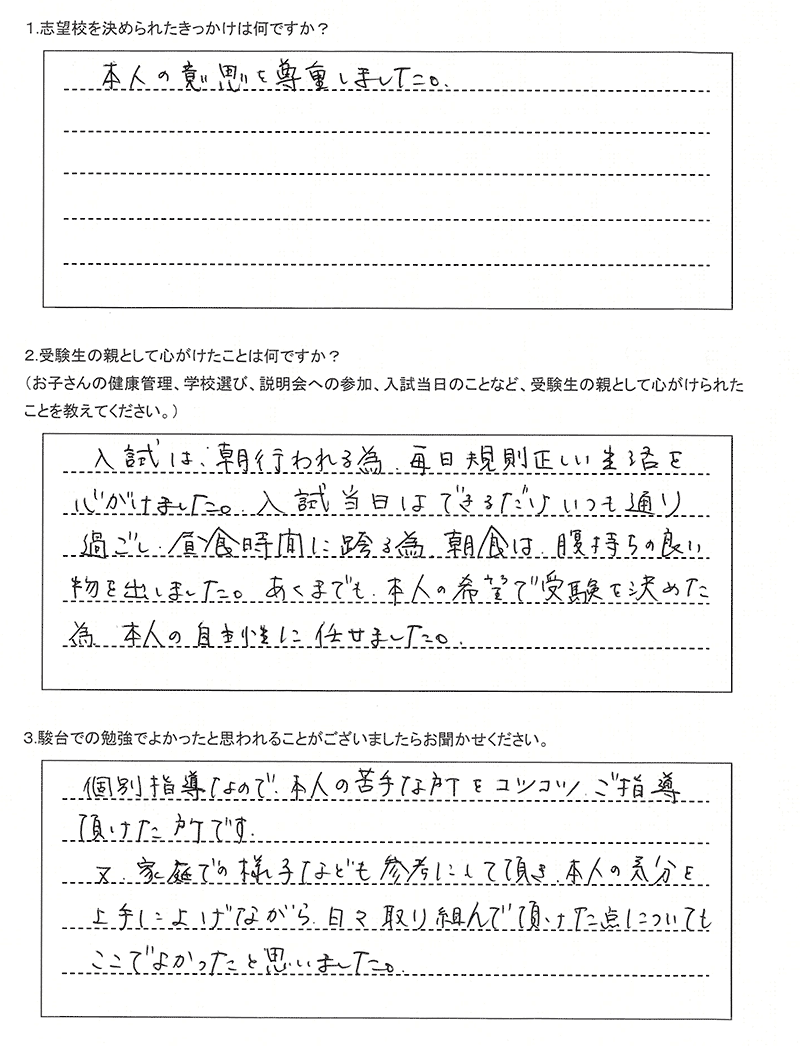 1.志望校を決められたきっかけは何ですか？
本人の意思を尊重しました。
2.受験生の親として心がけたことは何ですか？
（お子さんの健康管理、学校選び、説明会への参加、入試当日のことなど、受験生の親として心がけられた
ことを教えてください。）
入試は、朝行われる為、毎日規則正しい生活を
心がけました。入試当日はできるだけいつも通り
過ごし、昼食時間に跨る為、朝食は、腹持ちの良い
物を出しました。あくまでも、本人の希望で受験を決めた
為、本人の自主性に任せました。
3.駿台での勉強でよかったと思われることがございましたらお聞かせください。
個別指導なので、本人の苦手な所をコツコツ、ご指導
頂けた所です。
又、家庭での様子なども参考にして頂き、本人の気分を
上手に上げながら、日々取り組んで頂けた点についても
ここでよかったと思いました。